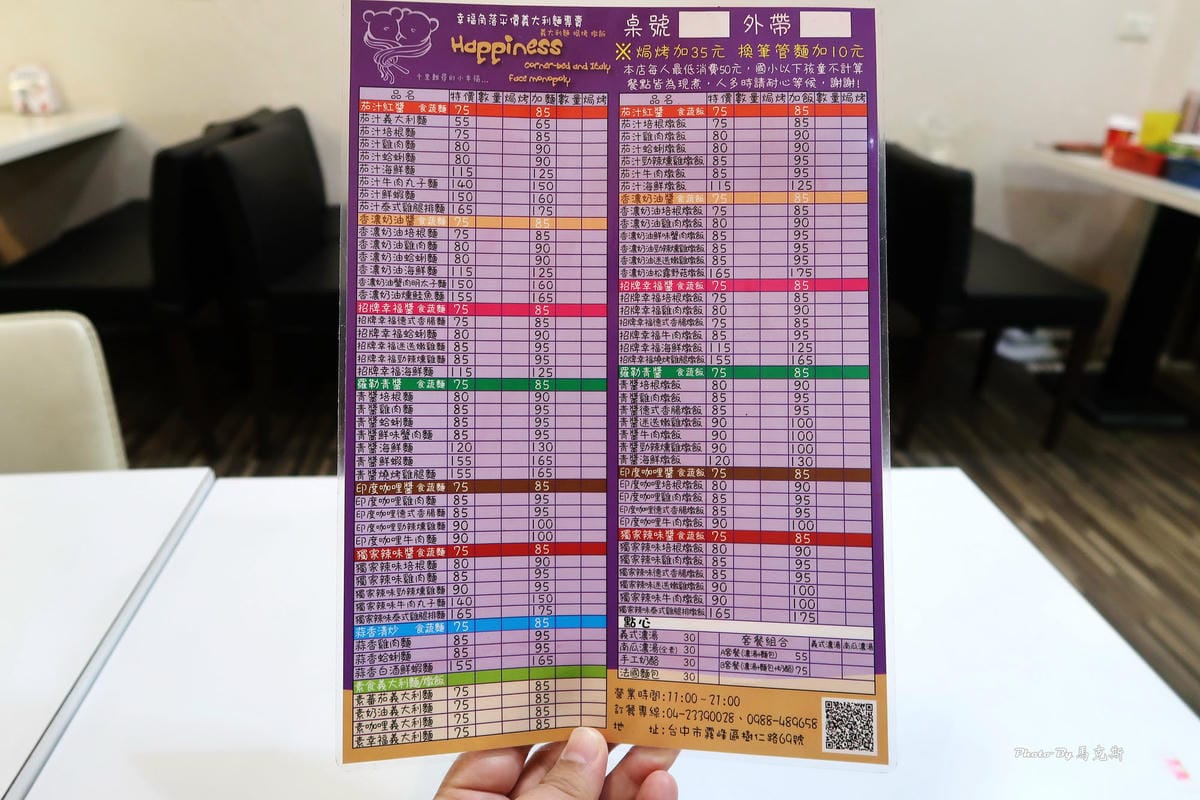 幸福角落平價義大利麵專賣
義大利麵 焗烤 燉飯
Happiness
corner-bad and Italy
Face monopoly
桌號 外帶
※焗烤加35元 換筆管麵加10元
本店每人最低消費50元，國小以下孩童不計算
餐點皆為現煮，人多時請耐心等候，謝謝!
品名 特價 數量 焗烤 加麵 數量 焗烤
茄汁紅醬 食蔬麵 75 85
茄汁義大利麵 55 65
茄汁培根麵 75 85
茄汁雞肉麵 80 90
茄汁蛤蜊麵 80 90
茄汁海鮮麵 115 125
茄汁牛肉丸子麵 140 150
茄汁鮮蝦麵 150 160
茄汁泰式雞腿排麵 165 175
香濃奶油醬 食蔬麵 75 85
香濃奶油培根麵 75 85
香濃奶油雞肉麵 80 90
香濃奶油蛤蜊麵 80 90
香濃奶油海鮮麵 115 125
香濃奶油蟹肉明太子麵 150 160
香濃奶油燻鮭魚麵 155 165
招牌幸福醬 食蔬麵 75 85
招牌幸福德式香腸麵 75 85
招牌幸福蛤蜊麵 80 90
招牌幸福迷迭嫩雞麵 85 95
招牌幸福勁辣燻雞麵 85 95
招牌幸福海鮮麵 115 125
羅勒青醬 食蔬麵 75 85
青醬培根麵 80 90
青醬雞肉麵 85 95
青醬蛤蜊麵 85 95
青醬鮮味蟹肉麵 85 95
青醬海鮮麵 120 130
青醬鮮蝦麵 155 165
青醬燒烤雞腿麵 155 165
印度咖哩醬 食蔬麵 75 85
印度咖哩雞肉麵 85 95
印度咖哩德式香腸麵 85 95
印度咖哩勁辣燻雞麵 90 100
印度咖哩牛肉麵 90 100
獨家辣味醬 食蔬麵 75 85
獨家辣味培根麵 80 90
獨家辣味雞肉麵 85 95
獨家辣味勁辣燻雞麵 90 95
獨家辣味牛肉丸子麵 140 150
獨家辣味泰式雞腿排麵 165 175
蒜香清炒 食蔬麵 75 85
蒜香雞肉麵 85 95
蒜香蛤蜊麵 85 95
蒜香白酒鮮蝦麵 155 165
素食義大利麵/燉飯
素蕃茄義大利麵 75 85
素奶油義大利麵 75 85
素咖哩義大利麵 75 85
素幸福義大利麵 75 85
品名 特價 數量 焗烤 加飯 數量 焗烤
茄汁紅醬 食蔬飯 75 85
茄汁培根燉飯 75 85
茄汁雞肉燉飯 80 90
茄汁蛤蜊燉飯 80 90
茄汁勁辣燻雞燉飯 85 95
茄汁牛肉燉飯 85 95
茄汁海鮮燉飯 115 125
香濃奶油醬 食蔬飯 75 85
香濃奶油培根燉飯 75 85
香濃奶油雞肉燉飯 80 90
香濃奶油鮮味蟹肉燉飯 85 95
香濃奶油勁辣燻雞燉飯 85 95
香濃奶油迷迭嫩雞燉飯 85 95
香濃奶油松露野菇燉飯 165 175
招牌幸福醬 食蔬飯 75 85
招牌幸福培根燉飯 75 85
招牌幸福雞肉燉飯 80 90
招牌幸福德式香腸燉飯 75 85
招牌幸福牛肉燉飯 85 95
招牌幸福海鮮燉飯 115 125
招牌幸福燒烤雞腿燉飯 155 165
羅勒青醬 食蔬飯 75 85
青醬培根燉飯 80 90
青醬雞肉燉飯 85 95
青醬德式香腸燉飯 85 95
青醬迷迭嫩雞燉飯 90 100
青醬牛肉燉飯 90 100
青醬勁辣燻雞燉飯 90 100
青醬海鮮燉飯 120 130
印度咖哩醬 食蔬飯 75 85
印度咖哩培根燉飯 80 90
印度咖哩雞肉燉飯 85 95
印度咖哩德式香腸燉飯 85 95
印度咖哩牛肉燉飯 90 100
獨家辣味醬 食蔬飯 75 85
獨家辣味培根燉飯 80 90
獨家辣味雞肉燉飯 85 95
獨家辣味德式香腸燉飯 85 95
獨家辣味迷迭嫩雞燉飯 90 100
獨家辣味牛肉燉飯 90 100
獨家辣味泰式雞腿排燉飯 165 175
點心
義式濃湯 30
南瓜濃湯(全素) 30
手工奶酪 30
法國麵包 30
套餐組合 義式濃湯 南瓜濃湯
A套餐(濃湯+麵包) 55
B套餐(濃湯+麵包+奶酪) 75
營業時間:11:00~21:00
訂餐專線:04-23390028、0988-489658
地 址:台中市霧峰區樹仁路69號
Photo By 馬克斯